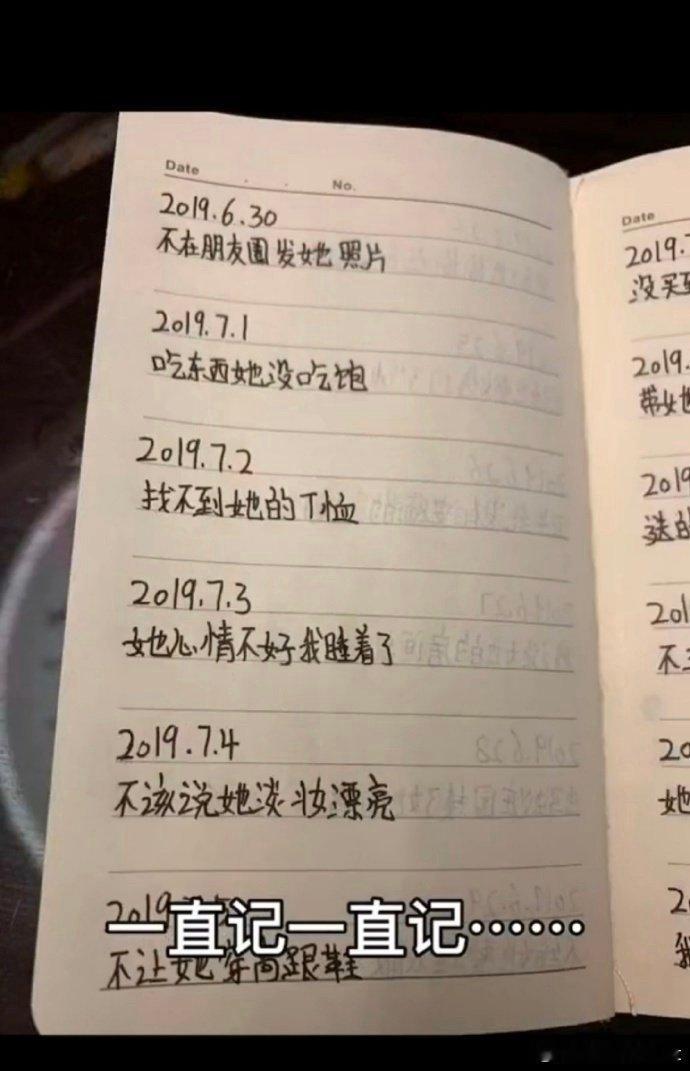 Date
No.
2019.6.30
不在朋友圈发她照片
2019.7.1
吃东西她没吃饱
2019.7.2
找不到她的T恤
2019.7.3
她心情不好我睡着了
2019.7.4
不该说她淡妆漂亮
2019
不让她穿高跟鞋
一直记一直记……
Date
2019.7
没买到
2019.
带她
2019
送的
201
不
20
她
2
我